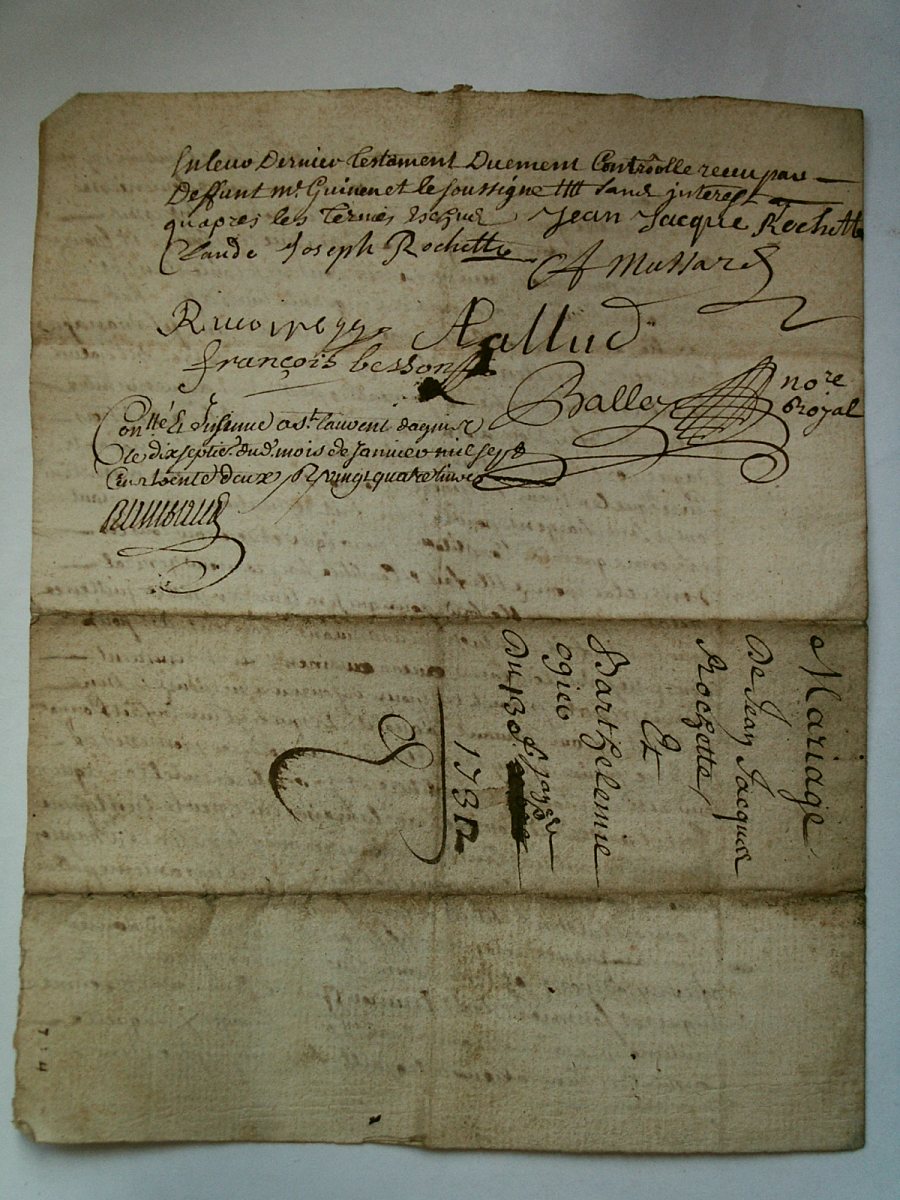 Dernier testament Duement Controlle receu par
Deffunt mr. Guinen et le soussigne sans interest
quapres les termes Jean Jacque Rochette
Claude Joseph Rochette Mussard
Rallud
françois besson
Balley nore
Royal
Conllé & Insinué a st. laurent
le dixseptie. dud. mois de janvier mil sept
Cent trente deux vingt quatre livres
Mariage
De Jean Jacques
Rochette
Et
Barthelemie
ogier
Du 13e
1732